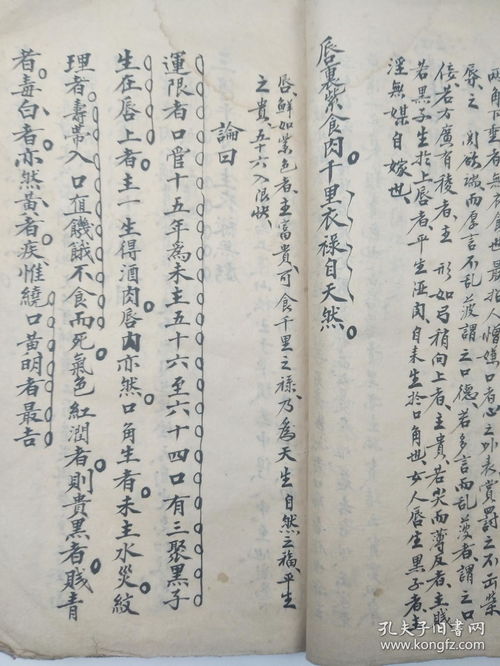 兩角下垂者無衣食也最招人憎嫌口者心之外表賞罰之不出榮
辱之関欲端而厚言不乱發謂之口德若多言而乱發者謂之口
若方廣有稜者主形如弓稍向上者主貴若尖而薄反者主賤
若黑子生於上唇者平生酒肉自来生於口角也女人唇生黑子者主
淫無媒自嫁也
唇裏紫食肉千里衣禄自天然
唇鮮如紫色者主富貴可食千里之禄乃為天生自然之福平生
之貴五十六入限快
論曰
運限者口管十五年為末主五十六至六十四口有三聚黑子
生在唇上者主一生得酒肉唇内亦然口角生者末主水災紋
理者壽帶入口值饑餓不食而死氣色紅潤者則貴黑者賤青
者毒白者亦然黄者疾惟繞口黄明者最吉
孔夫子旧书网
www.kongfz.com